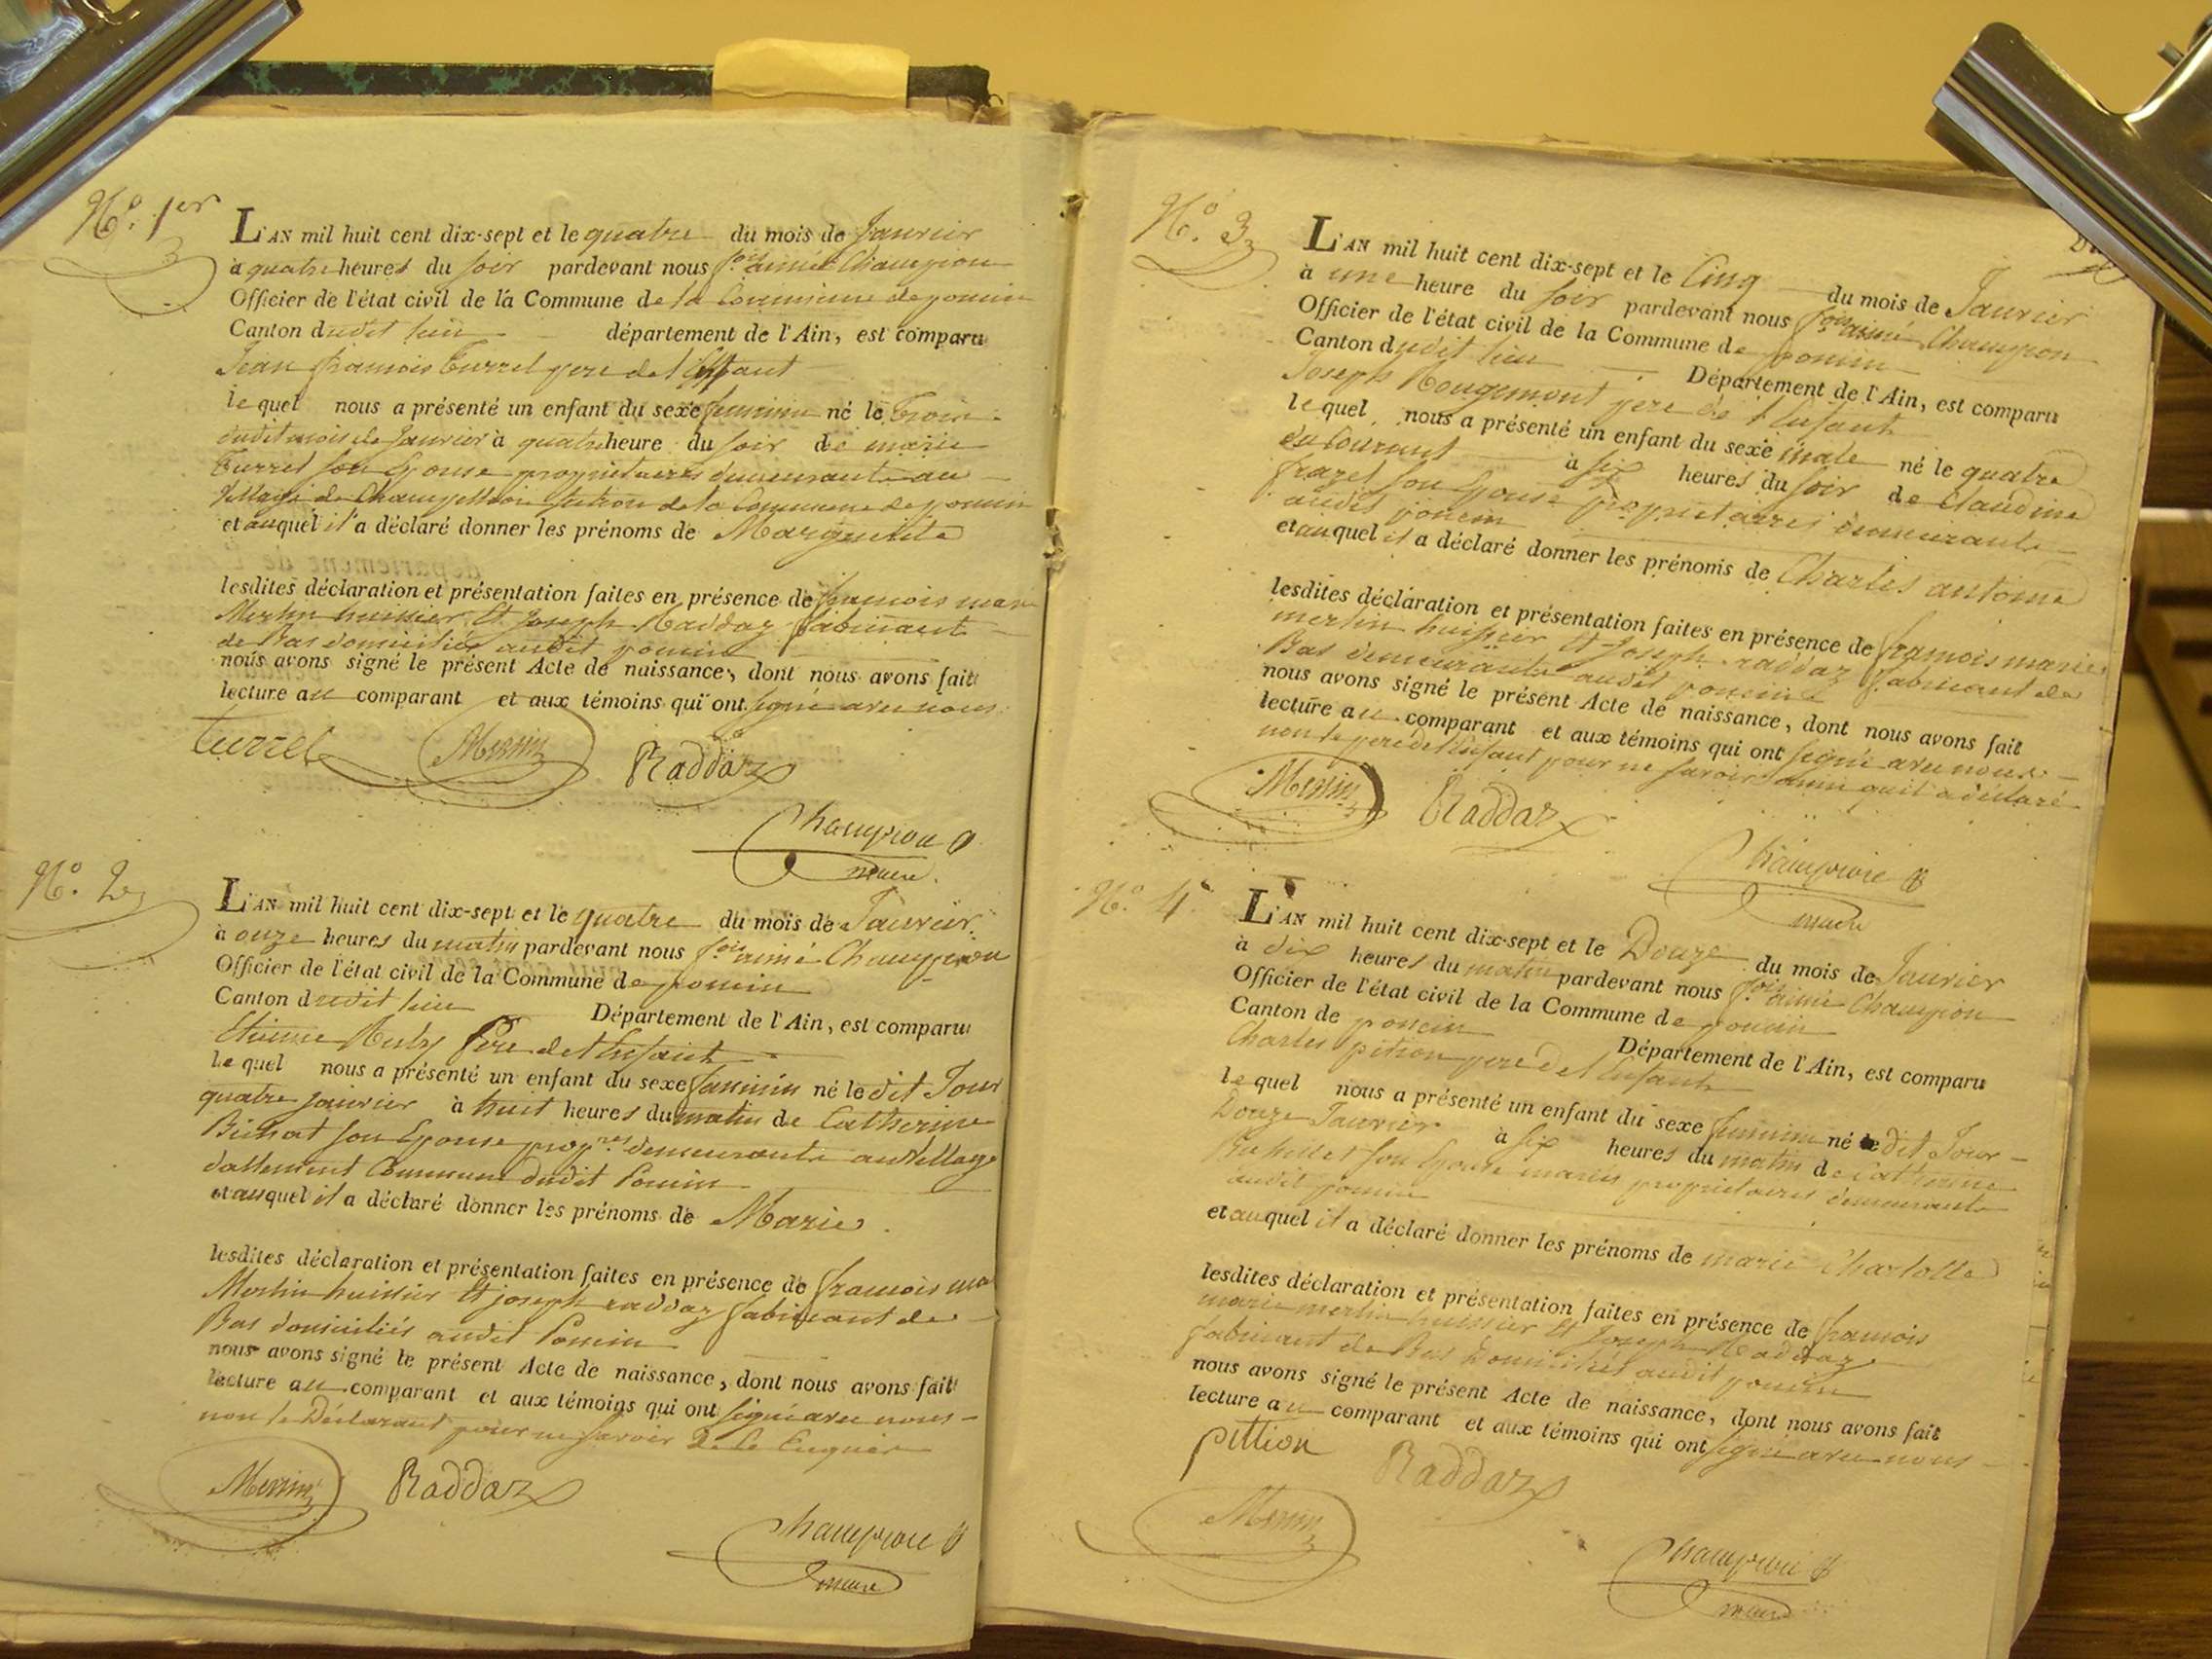 N.º 1er
L'AN mil huit cent dix-sept et le quatre du mois de Janvier
à quatre heures du soir pardevant nous f.ois aimé Champion
Officier de l'état civil de la Commune de la Commune de poncin
Canton dudit lieu département de l'Ain, est comparu
Jean françois Turrel pere de l'Enfant
lequel nous a présenté un enfant du sexe feminin né le Trois
dudit mois de Janvier à quatre heure du soir de marie
Turrel son Epouse proprietaires demeurants au
Village de Champeillon section de la Commune de poncin
et auquel il a déclaré donner les prénoms de Marguerite
lesdites déclaration et présentation faites en présence de françois marie
Merlin huissier Et Joseph Raddaz fabricant
de Bas domiciliés audit poncin
nous avons signé le présent Acte de naissance, dont nous avons fait
lecture au comparant et aux témoins qui ont signé avec nous
Turrel Merlin Raddaz
Champion
maire
N.º 2
L'AN mil huit cent dix-sept et le quatre du mois de Janvier
à onze heures du matin pardevant nous f.ois aimé Champion
Officier de l'état civil de la Commune de poncin
Canton dudit lieu Département de l'Ain, est comparu
Etienne Père de l'Enfant
lequel nous a présenté un enfant du sexe feminin né le dit Jour
quatre janvier à huit heures du matin de Catherine
Bichat son Epouse prop.res demeurants au Village
dallement Commune dudit Poncin
et auquel il a déclaré donner les prénoms de Marie
lesdites déclaration et présentation faites en présence de françois ma
Merlin huissier Et joseph raddaz fabricant de
Bas domiciliés audit Poncin
nous avons signé le présent Acte de naissance, dont nous avons fait
lecture au comparant et aux témoins qui ont signé avec nous
non le Déclarant pour ne savoir de ce Enquis
Merlin Raddaz
Champion
maire
N.º 3
L'AN mil huit cent dix-sept et le Cinq du mois de Janvier
à une heure du soir pardevant nous f.ois aimé Champion
Officier de l'état civil de la Commune de poncin
Canton dudit lieu Département de l'Ain, est comparu
Joseph Rougemont pere de l'Enfant
lequel nous a présenté un enfant du sexe male né le quatre
du Courant à six heures du soir de Claudine
frazet son Epouse proprietaires demeurants
audit poncin
et auquel il a déclaré donner les prénoms de Charles antoine
lesdites déclaration et présentation faites en présence de françois marie
merlin huissier Et Joseph raddaz fabricant de
Bas demeurants audit poncin
nous avons signé le présent Acte de naissance, dont nous avons fait
lecture au comparant et aux témoins qui ont signé avec nous
non le pere de l'Enfant pour ne savoir ainsi quil a déclaré
Merlin Raddaz
Champion
maire
N.º 4
L'AN mil huit cent dix-sept et le Douze du mois de Janvier
à dix heures du matin pardevant nous f.ois aimé Champion
Officier de l'état civil de la Commune de poncin
Canton de poncin Département de l'Ain, est comparu
Charles pition pere de l'Enfant
lequel nous a présenté un enfant du sexe feminin né le dit Jour
Douze Janvier à six heures du matin de Catherine
son Epouse mariés proprietaires demeurants
audit poncin
et auquel il a déclaré donner les prénoms de marie Charlotte
lesdites déclaration et présentation faites en présence de françois
marie merlin huissier Et Joseph Raddaz
fabricant de Bas Domiciliés audit poncin
nous avons signé le présent Acte de naissance, dont nous avons fait
lecture au comparant et aux témoins qui ont signé avec nous
pittion Raddaz
Merlin
Champion
maire